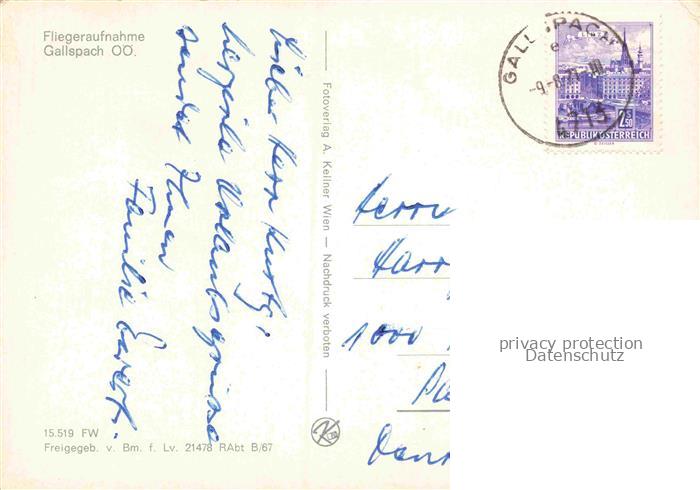 Fliegeraufnahme
Gallspach OÖ.
Lieber Herr Kurtz!
herzliche Urlaubsgrüsse
sendet Ihnen
Familie
Fotoverlag A. Kellner Wien — Nachdruck verboten
15.519 FW
Freigegeb. v. Bm. f. Lv. 21478 RAbt B/67
GALLSPACH
-9.-8.71
4713
2.50
REPUBLIK ÖSTERREICH
Herrn
Harr
1000
privacy protection
Datenschutz